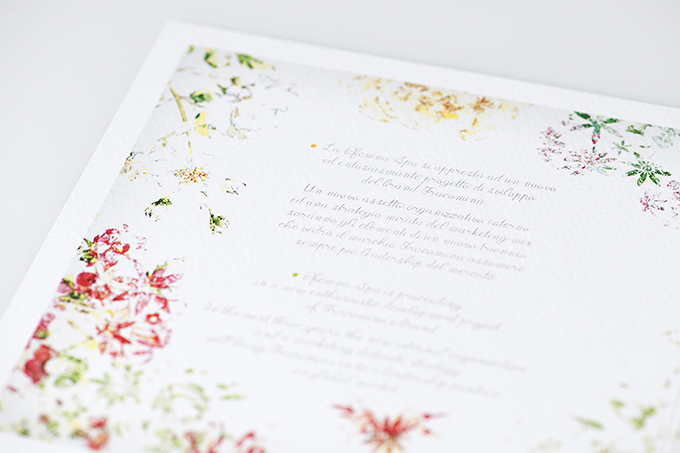 La Kosmo Spa si appresta ad un nuovo
ed entusiasmante progetto di sviluppo
del brand Fracomina.
Un nuovo assetto organizzativo interno
ed una strategia mirata del marketing-mix
saranno gli elementi di un nuovo triennio
che vedrà il marchio Fracomina assumere
sempre più leadership del mercato.
Spa is proceeding
in a new enthusiastic development project
of Fracomina's brand.
In the next three years the new internal organization
and a marketing strategy